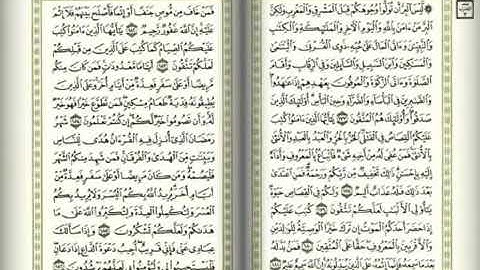 ۞ لَّيْسَ الْبِرَّ أَن تُوَلُّوا وُجُوهَكُمْ قِبَلَ الْمَشْرِقِ وَالْمَغْرِبِ وَلَٰكِنَّ
الْبِرَّ مَنْ آمَنَ بِاللَّهِ وَالْيَوْمِ الْآخِرِ وَالْمَلَٰئِكَةِ وَالْكِتَٰبِ
وَالنَّبِيِّينَ وَآتَى الْمَالَ عَلَىٰ حُبِّهِ ذَوِي الْقُرْبَىٰ وَالْيَتَٰمَىٰ
وَالْمَسَٰكِينَ وَابْنَ السَّبِيلِ وَالسَّائِلِينَ وَفِي الرِّقَابِ وَأَقَامَ
الصَّلَوٰةَ وَآتَى الزَّكَوٰةَ وَالْمُوفُونَ بِعَهْدِهِمْ إِذَا عَٰهَدُوا
وَالصَّٰبِرِينَ فِي الْبَأْسَاءِ وَالضَّرَّاءِ وَحِينَ الْبَأْسِ أُولَٰئِكَ الَّذِينَ
صَدَقُوا وَأُولَٰئِكَ هُمُ الْمُتَّقُونَ ١٧٧ يَٰأَيُّهَا الَّذِينَ آمَنُوا كُتِبَ
عَلَيْكُمُ الْقِصَاصُ فِي الْقَتْلَى الْحُرُّ بِالْحُرِّ وَالْعَبْدُ بِالْعَبْدِ وَالْأُنثَىٰ
بِالْأُنثَىٰ فَمَنْ عُفِيَ لَهُ مِنْ أَخِيهِ شَيْءٌ فَاتِّبَاعٌ بِالْمَعْرُوفِ وَأَدَاءٌ
إِلَيْهِ بِإِحْسَٰنٍ ذَٰلِكَ تَخْفِيفٌ مِّن رَّبِّكُمْ وَرَحْمَةٌ فَمَنِ اعْتَدَىٰ
بَعْدَ ذَٰلِكَ فَلَهُ عَذَابٌ أَلِيمٌ ١٧٨ وَلَكُمْ فِي الْقِصَاصِ حَيَوٰةٌ
يَٰأُولِي الْأَلْبَٰبِ لَعَلَّكُمْ تَتَّقُونَ ١٧٩ كُتِبَ عَلَيْكُمْ
إِذَا حَضَرَ أَحَدَكُمُ الْمَوْتُ إِن تَرَكَ خَيْرًا الْوَصِيَّةُ لِلْوَٰلِدَيْنِ
وَالْأَقْرَبِينَ بِالْمَعْرُوفِ حَقًّا عَلَى الْمُتَّقِينَ ١٨٠ فَمَن بَدَّلَهُ
فَمَنْ خَافَ مِن مُّوصٍ جَنَفًا أَوْ إِثْمًا فَأَصْلَحَ بَيْنَهُمْ فَلَا إِثْمَ
عَلَيْهِ إِنَّ اللَّهَ غَفُورٌ رَّحِيمٌ ١٨٢ يَٰأَيُّهَا الَّذِينَ آمَنُوا كُتِبَ
عَلَيْكُمُ الصِّيَامُ كَمَا كُتِبَ عَلَى الَّذِينَ مِن قَبْلِكُمْ
لَعَلَّكُمْ تَتَّقُونَ ١٨٣ أَيَّامًا مَّعْدُودَٰتٍ فَمَن كَانَ مِنكُم
مَّرِيضًا أَوْ عَلَىٰ سَفَرٍ فَعِدَّةٌ مِّنْ أَيَّامٍ أُخَرَ وَعَلَى الَّذِينَ
يُطِيقُونَهُ فِدْيَةٌ طَعَامُ مِسْكِينٍ فَمَن تَطَوَّعَ خَيْرًا فَهُوَ خَيْرٌ لَّهُ
وَأَن تَصُومُوا خَيْرٌ لَّكُمْ إِن كُنتُمْ تَعْلَمُونَ ١٨٤ شَهْرُ
رَمَضَانَ الَّذِي أُنزِلَ فِيهِ الْقُرْآنُ هُدًى لِّلنَّاسِ
وَبَيِّنَٰتٍ مِّنَ الْهُدَىٰ وَالْفُرْقَانِ فَمَن شَهِدَ مِنكُمُ الشَّهْرَ
فَلْيَصُمْهُ وَمَن كَانَ مَرِيضًا أَوْ عَلَىٰ سَفَرٍ فَعِدَّةٌ مِّنْ
أَيَّامٍ أُخَرَ يُرِيدُ اللَّهُ بِكُمُ الْيُسْرَ وَلَا يُرِيدُ بِكُمُ
الْعُسْرَ وَلِتُكْمِلُوا الْعِدَّةَ وَلِتُكَبِّرُوا اللَّهَ عَلَىٰ
مَا هَدَىٰكُمْ وَلَعَلَّكُمْ تَشْكُرُونَ ١٨٥ وَإِذَا سَأَلَكَ
عِبَادِي عَنِّي فَإِنِّي قَرِيبٌ أُجِيبُ دَعْوَةَ الدَّاعِ إِذَا دَعَانِ
فَلْيَسْتَجِيبُوا لِي وَلْيُؤْمِنُوا بِي لَعَلَّهُمْ يَرْشُدُونَ